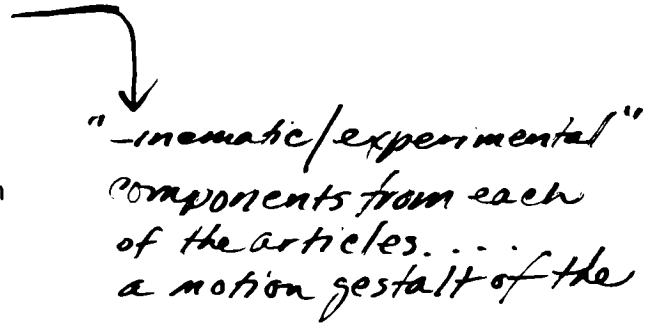 "-inematic/experimental"
components from each
of the articles....
a motion gestalt of the